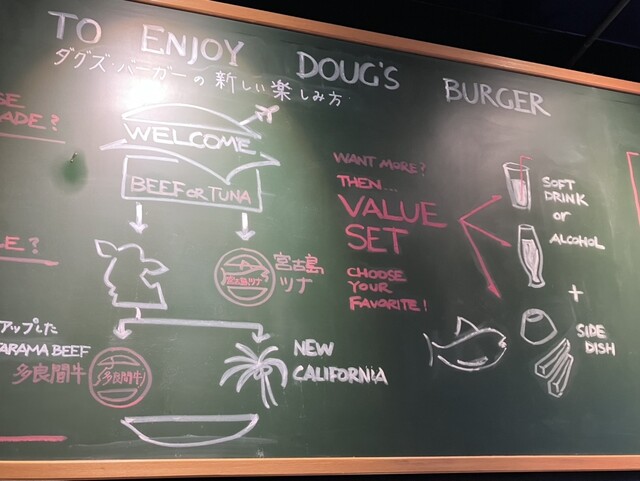 TO ENJOY DOUG'S BURGER
ダグズ・バーガーの新しい楽しみ方
ADE?
WELCOME
BEEF OR TUNA
LE?
宮古島
ツナ
アップした
ARAMA BEEF
多良間牛
多良間牛
NEW
CALIFORNIA
WANT MORE?
THEN...
VALUE
SET
CHOOSE
YOUR
FAVORITE!
SOFT
DRINK
or
ALCOHOL
+
SIDE
DISH